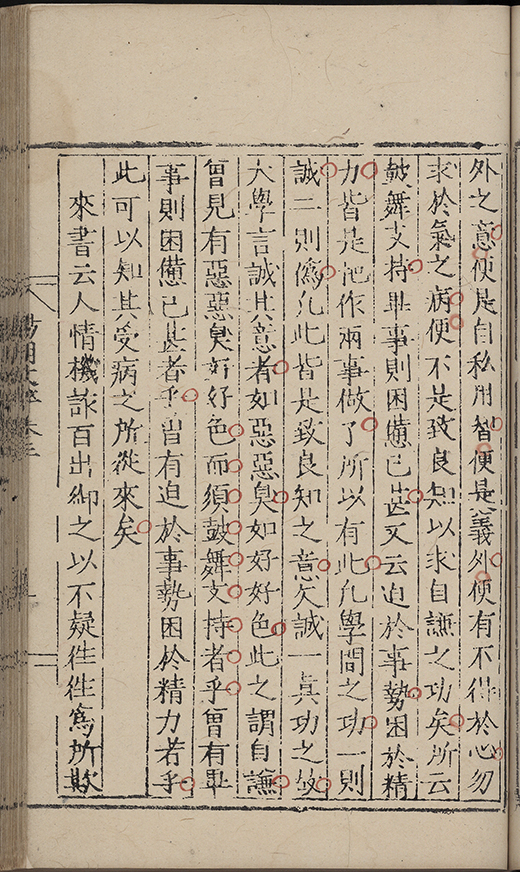 外之意便是自私用智便是義外便有不得於心勿
求於氣之病便不是致良知以求自謙之功矣所云
鼓舞支持畢事則困憊已甚又云迫於事勢困於精
力皆是把作兩事做了所以有此凢學問之功一則
誠二則僞凢此皆是致良知之意欠誠一眞切之故
大學言誠其意者如惡惡臭如好好色此之謂自謙
曾見有惡惡臭好好色而須鼓舞支持者乎曾有畢
事則困憊已甚者乎曾有迫於事勢困於精力者乎
此可以知其受病之所從來矣
來書云人情機詐百出御之以不疑徃徃爲所欺
陽明文粹 卷三